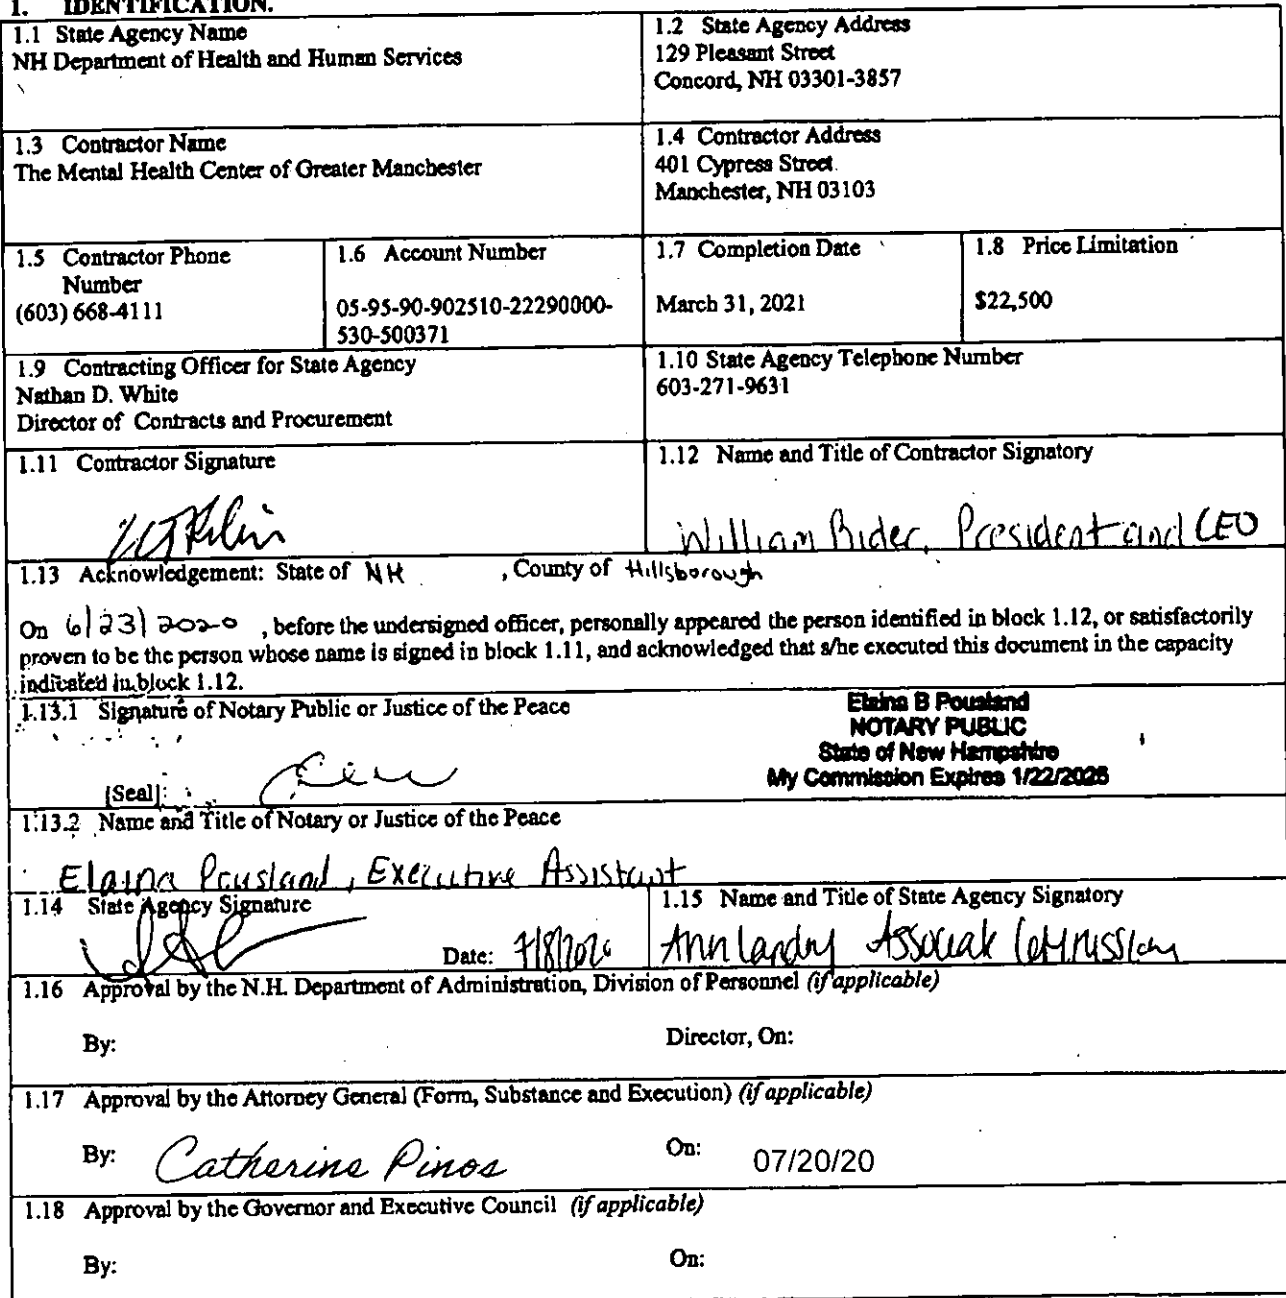 1. IDENTIFICATION.
1.1 State Agency Name
NH Department of Health and Human Services
1.2 State Agency Address
129 Pleasant Street
Concord, NH 03301-3857
1.3 Contractor Name
The Mental Health Center of Greater Manchester
1.4 Contractor Address
401 Cypress Street
Manchester, NH 03103
1.5 Contractor Phone
Number
(603) 668-4111
1.6 Account Number
05-95-90-902510-22290000-
530-500371
1.7 Completion Date
March 31, 2021
1.8 Price Limitation
$22,500
1.9 Contracting Officer for State Agency
Nathan D. White
Director of Contracts and Procurement
1.10 State Agency Telephone Number
603-271-9631
1.11 Contractor Signature
1.12 Name and Title of Contractor Signatory
William Rider, President and CEO
1.13 Acknowledgement: State of NH , County of Hillsborough
On 6/23/2020 , before the undersigned officer, personally appeared the person identified in block 1.12, or satisfactorily
proven to be the person whose name is signed in block 1.11, and acknowledged that s/he executed this document in the capacity
indicated in block 1.12.
1.13.1 Signature of Notary Public or Justice of the Peace
[Seal]
Elaina B Pousland
NOTARY PUBLIC
State of New Hampshire
My Commission Expires 1/22/2025
1.13.2 Name and Title of Notary or Justice of the Peace
Elaina Pousland, Executive Assistant
1.14 State Agency Signature
Date: 7/8/2020
1.15 Name and Title of State Agency Signatory
Ann Landry Associate Commissioner
1.16 Approval by the N.H. Department of Administration, Division of Personnel (if applicable)
By: Director, On:
1.17 Approval by the Attorney General (Form, Substance and Execution) (if applicable)
By: Catherine Pinos On: 07/20/20
1.18 Approval by the Governor and Executive Council (if applicable)
By: On: